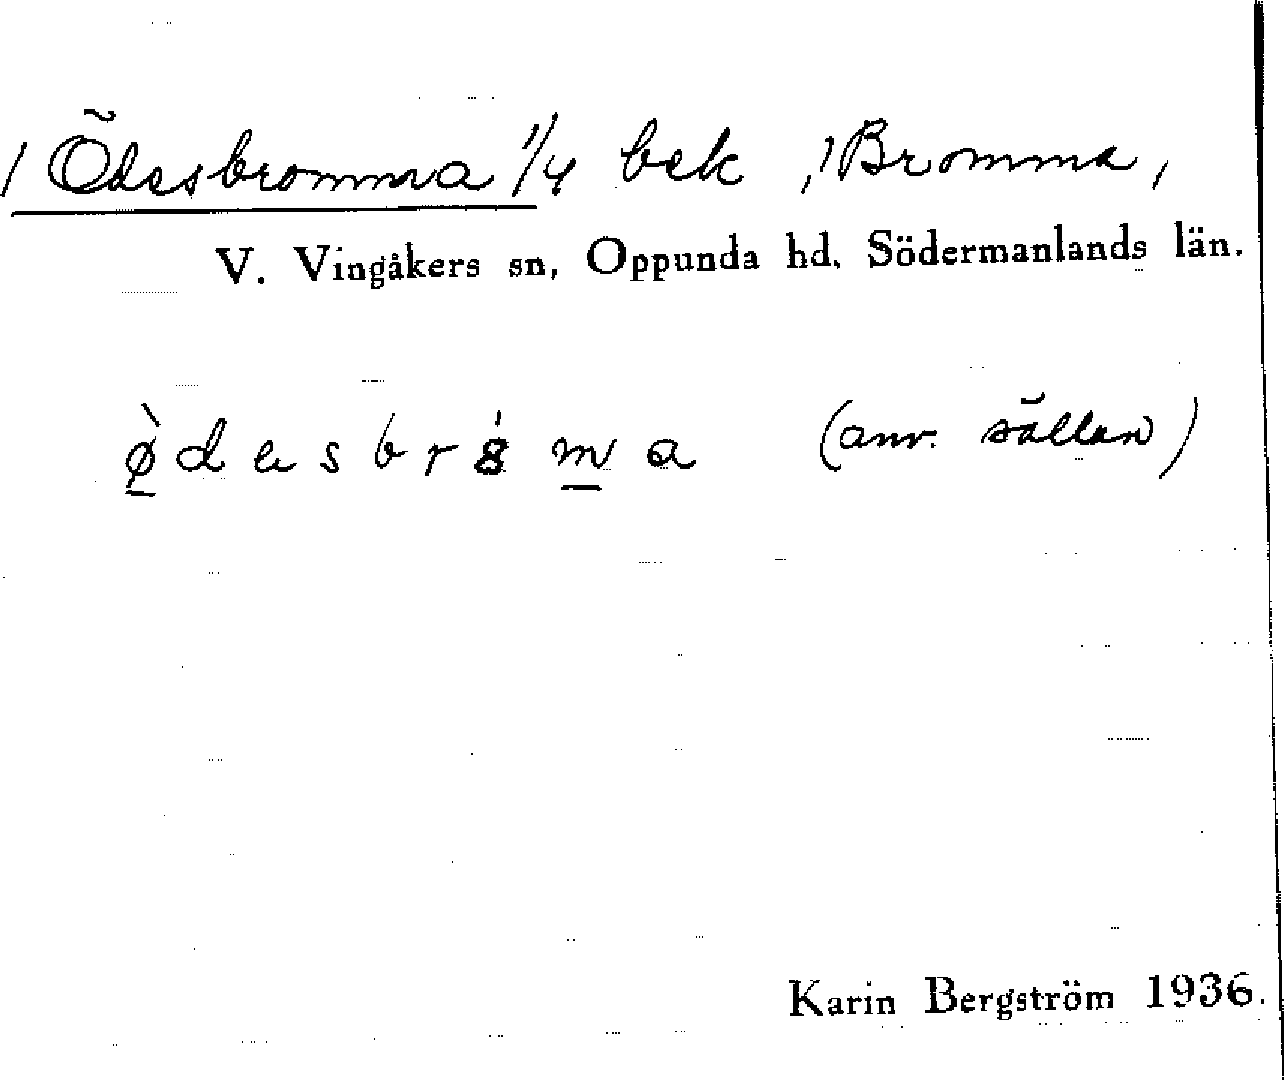 / Ödesbromma 1/4 bek , 1 Bromma ,
V. Vingåkers sn, Oppunda hd. Södermanlands län.
(anv. sällan)
Karin Bergström 1936.